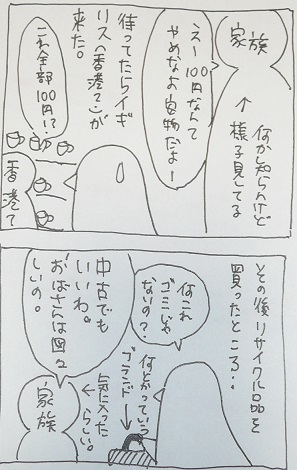 家族
何かし知らんけど
↑様子見してよ
えー100円なんて
やめなよ安物だよー
待ってたらイギ
リス〈香港て〉が
来た。
これ全部
100円!?
香港て
その後リサイクル品を
買ったところ‥
何これ
ゴミじゃ
ないの?
何とかっていう
ブランド→
中古でも
いいわ。
おばさんは図々
しいの。
気に入った
らしい。
家族